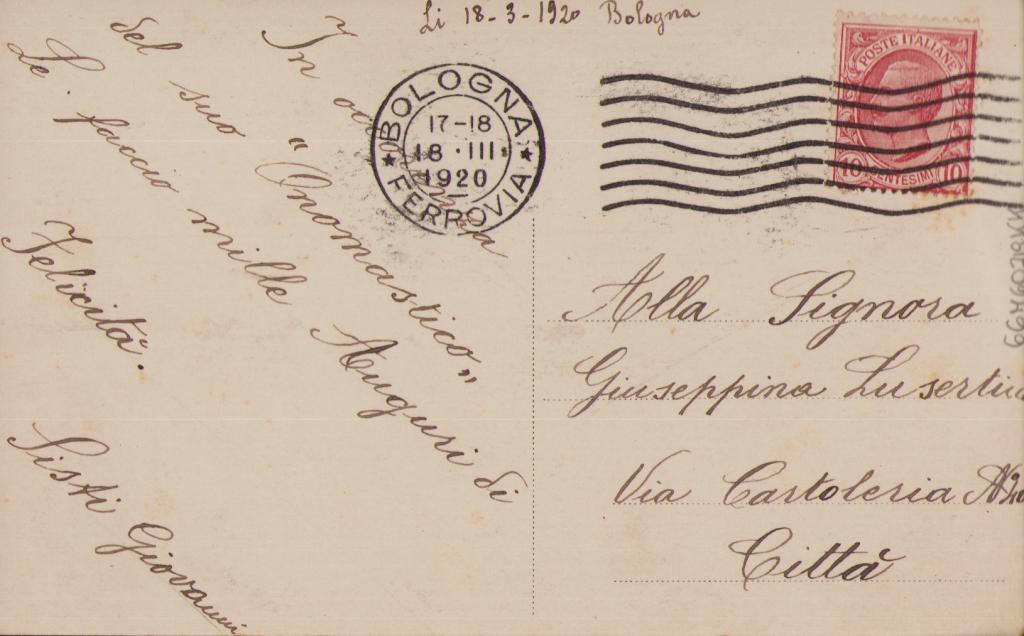 Li 18-3-1920 Bologna
In
del suo "Onomastico„
Le faccio mille Auguri di
Felicità.
Sisti Giovanni
BOLOGNA
17-18
18·III
1920
FERROVIA
POSTE ITALIANE
10 CENTESIMI 10
Alla Signora
Giuseppina
Via Cartoleria
Città